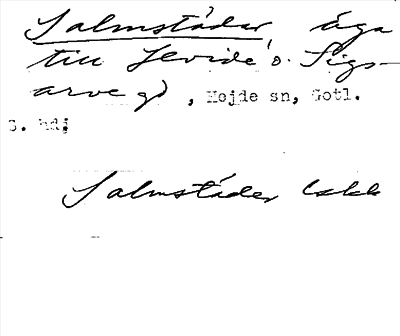 Salmstädar, äga
till Levide o. Sigs-
arve gd, Hejde sn, Gotl.
S. hd;
Salmstäder Lskk